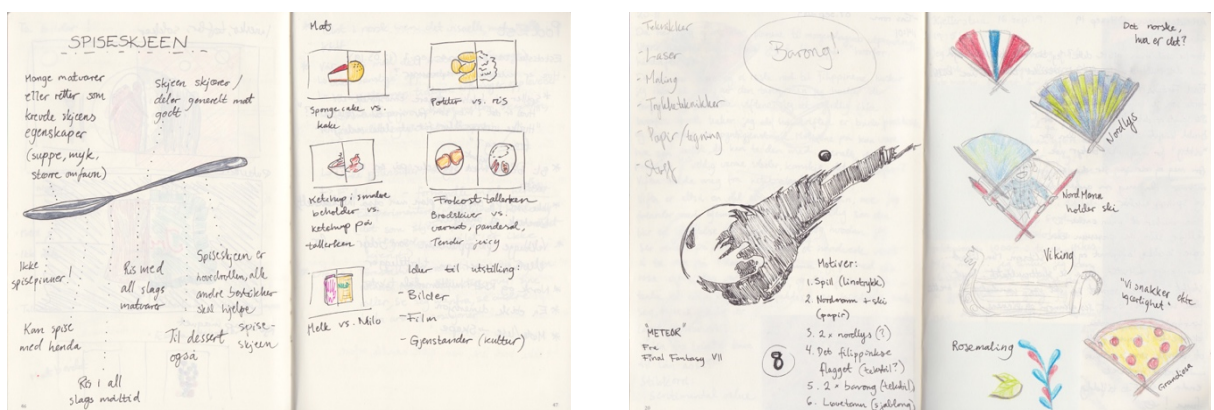 SPISESKJEEN
Mange matvarer
eller retter som
krevde skjeens
egenskaper
(suppe, myk,
større omfavne)
skjeen skjærer /
deler generelt mat
godt
Ikke
spisepinner!
Kan spise
med henda
Ris med
all slags
matvarer
Ris i all
slags måltid
Spiseskjeen er
hovedrollen, alle
andre bestikker
skal hjelpe
spise-
skjeen
Til dessert
også
Mats
Sponge cake vs.
kake
Poteter vs. ris
Ketchup i smalere
beholder vs.
ketchup på
tallerken
Frokost tallerken
Brødskiver vs.
varmat, pandesal,
Tender juicy
Melk vs. Milo
Ideer til utstilling:
- Bilder
- Film
- Gjenstander (kultur)
Teknikker
- Laser
- Maling
- Trykketeknikker
- Papir/tegning
- Stoff
Barong!
"METEOR"
Fra
Final Fantasy VII
8
Motiver:
1. Spill (linotrykk)
2. Nordmann + ski
(papir)
3. 2 x nordlys (?)
4. Det filippinske
flagget (tekstil?)
5. 2 x barong (tekstil)
6. (sjablong)
Det norske,
hva er det?
Nordlys
NordMann
holder ski
Viking
"Vi snakker ofte
kjærlighet"
Rosemaling
Grandiosa